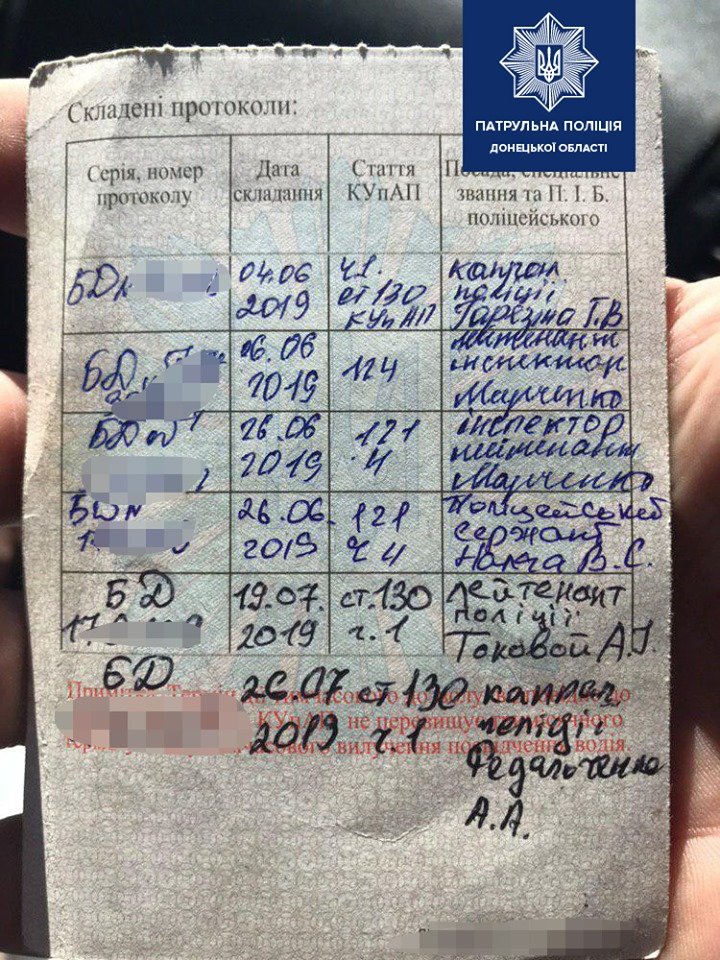 ПАТРУЛЬНА ПОЛІЦІЯ
ДОНЕЦЬКОЇ ОБЛАСТІ
Складені протоколи:
Серія, номер
протоколу
Дата
складання
Стаття
КУпАП
Посада, спеціальне
звання та П. І. Б.
поліцейського
БД
04.06
2019
ч1.
ст130
КУпАП
капрал
поліції
Т.В
БД
26.06
2019
124
лейтенант
інспектор
Марченко
БД
26.06
2019
121
4
інспектор
лейтенант
Марченко
26.06.
2019
121
ч 4
Поліцейський
сержант
В.С.
БД
19.07.
2019
ст.130
ч.1
лейтенант
поліції
Токовой А.
БД
26 07
2019
ст 130
ч.1
капрал
поліції
А.А.
КУпАП, не перевищує
вилучення посвідчення водія.